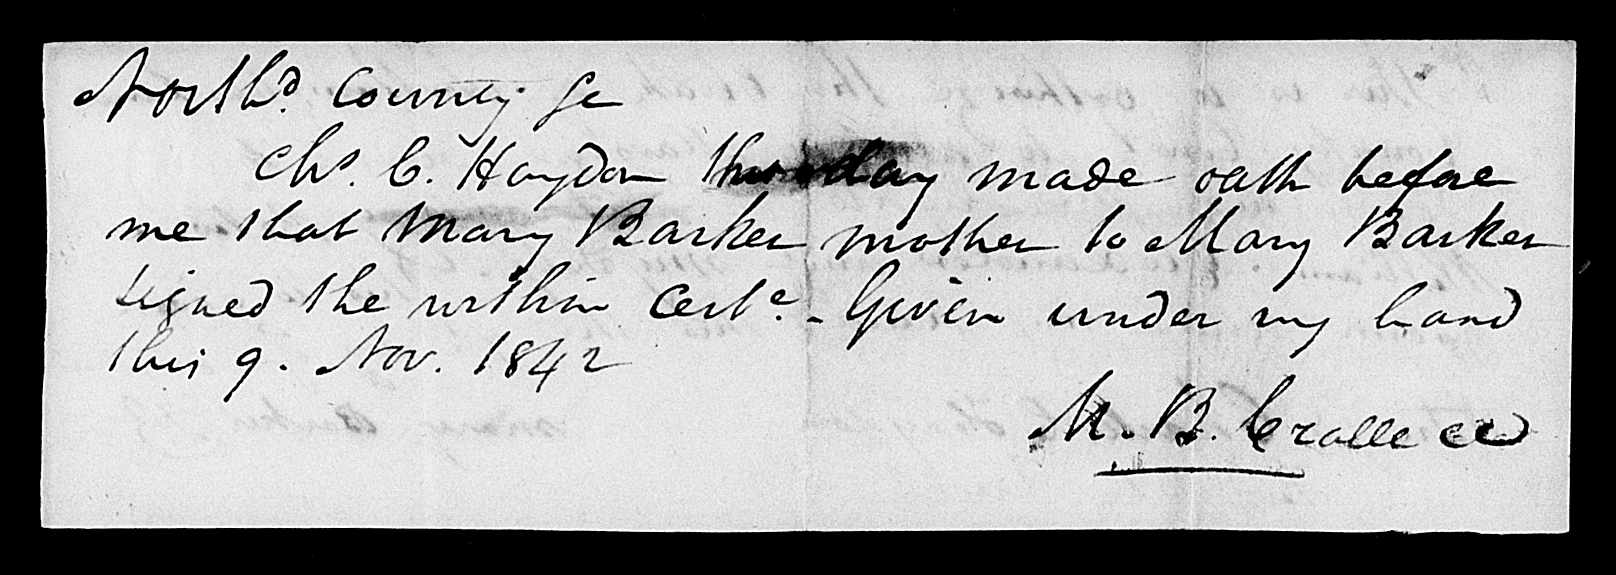 North^d. County Sc
Ch^s. C. Haydon this day made oath before
me that Mary Barker mother to Mary Barker
signed the within Cert^e. Given under my hand
this 9. Nov. 1842
M. B. Cralle CC